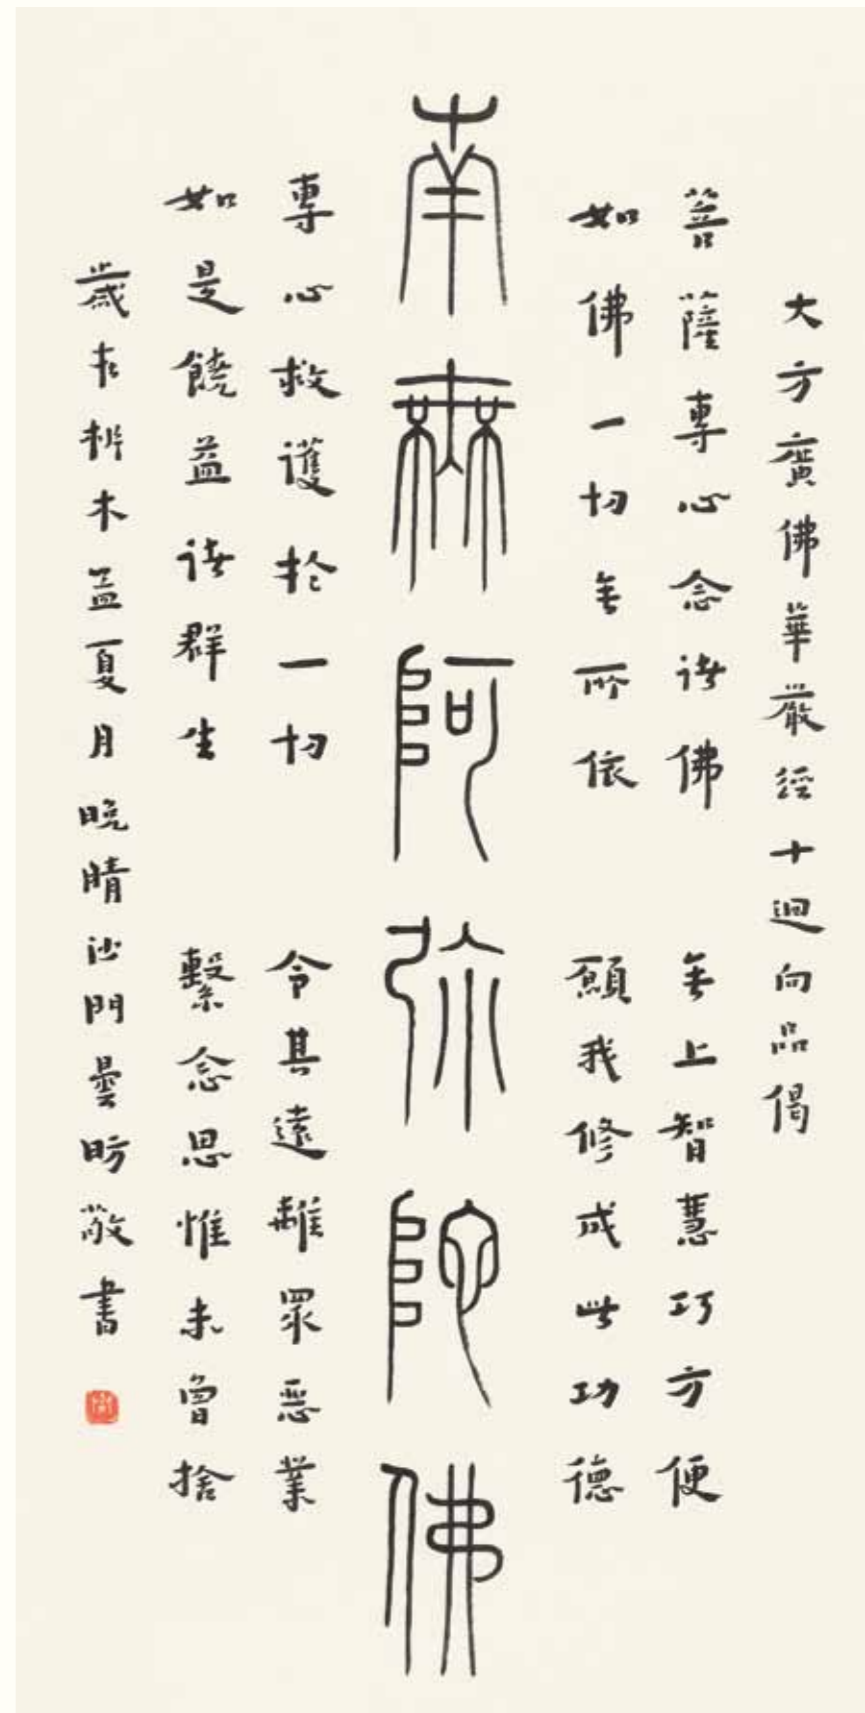 大方廣佛華嚴經十迴向品偈
菩薩專心念諸佛 無上智慧巧方便
如佛一切無所依 願我修成此功德
南無阿弥陀佛
專心救護於一切 令其遠離眾惡業
如是饒益諸群生 繫念思惟未曾捨
歲在析木孟夏月晚晴沙門曇昉敬書